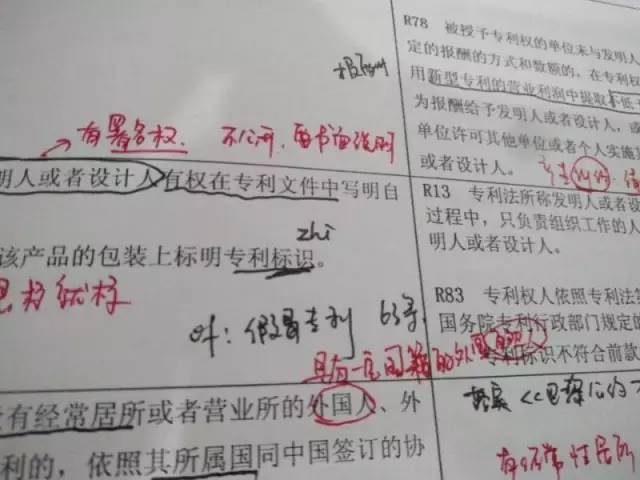 有署名权. 不公开, 要书面说明
明人或者设计人有权在专利文件中写明自
zhi
该产品的包装上标明专利标识。
假冒专利 63条
具有一定国籍的外国人
有经常居所或者营业所的外国人、外
利的，依照其所属国同中国签订的协
R78 被授予专利权的单位未与发明人
定的报酬的方式和数额的，在专利权
用新型专利的营业利润中提取不低
为报酬给予发明人或者设计人，或
单位许可其他单位或者个人实施其
或者设计人。
R13 专利法所称发明人或者设
过程中，只负责组织工作的人
明人或者设计人。
R83 专利权人依照专利法第
国务院专利行政部门规定的
专利标识不符合前款
有经常性居所